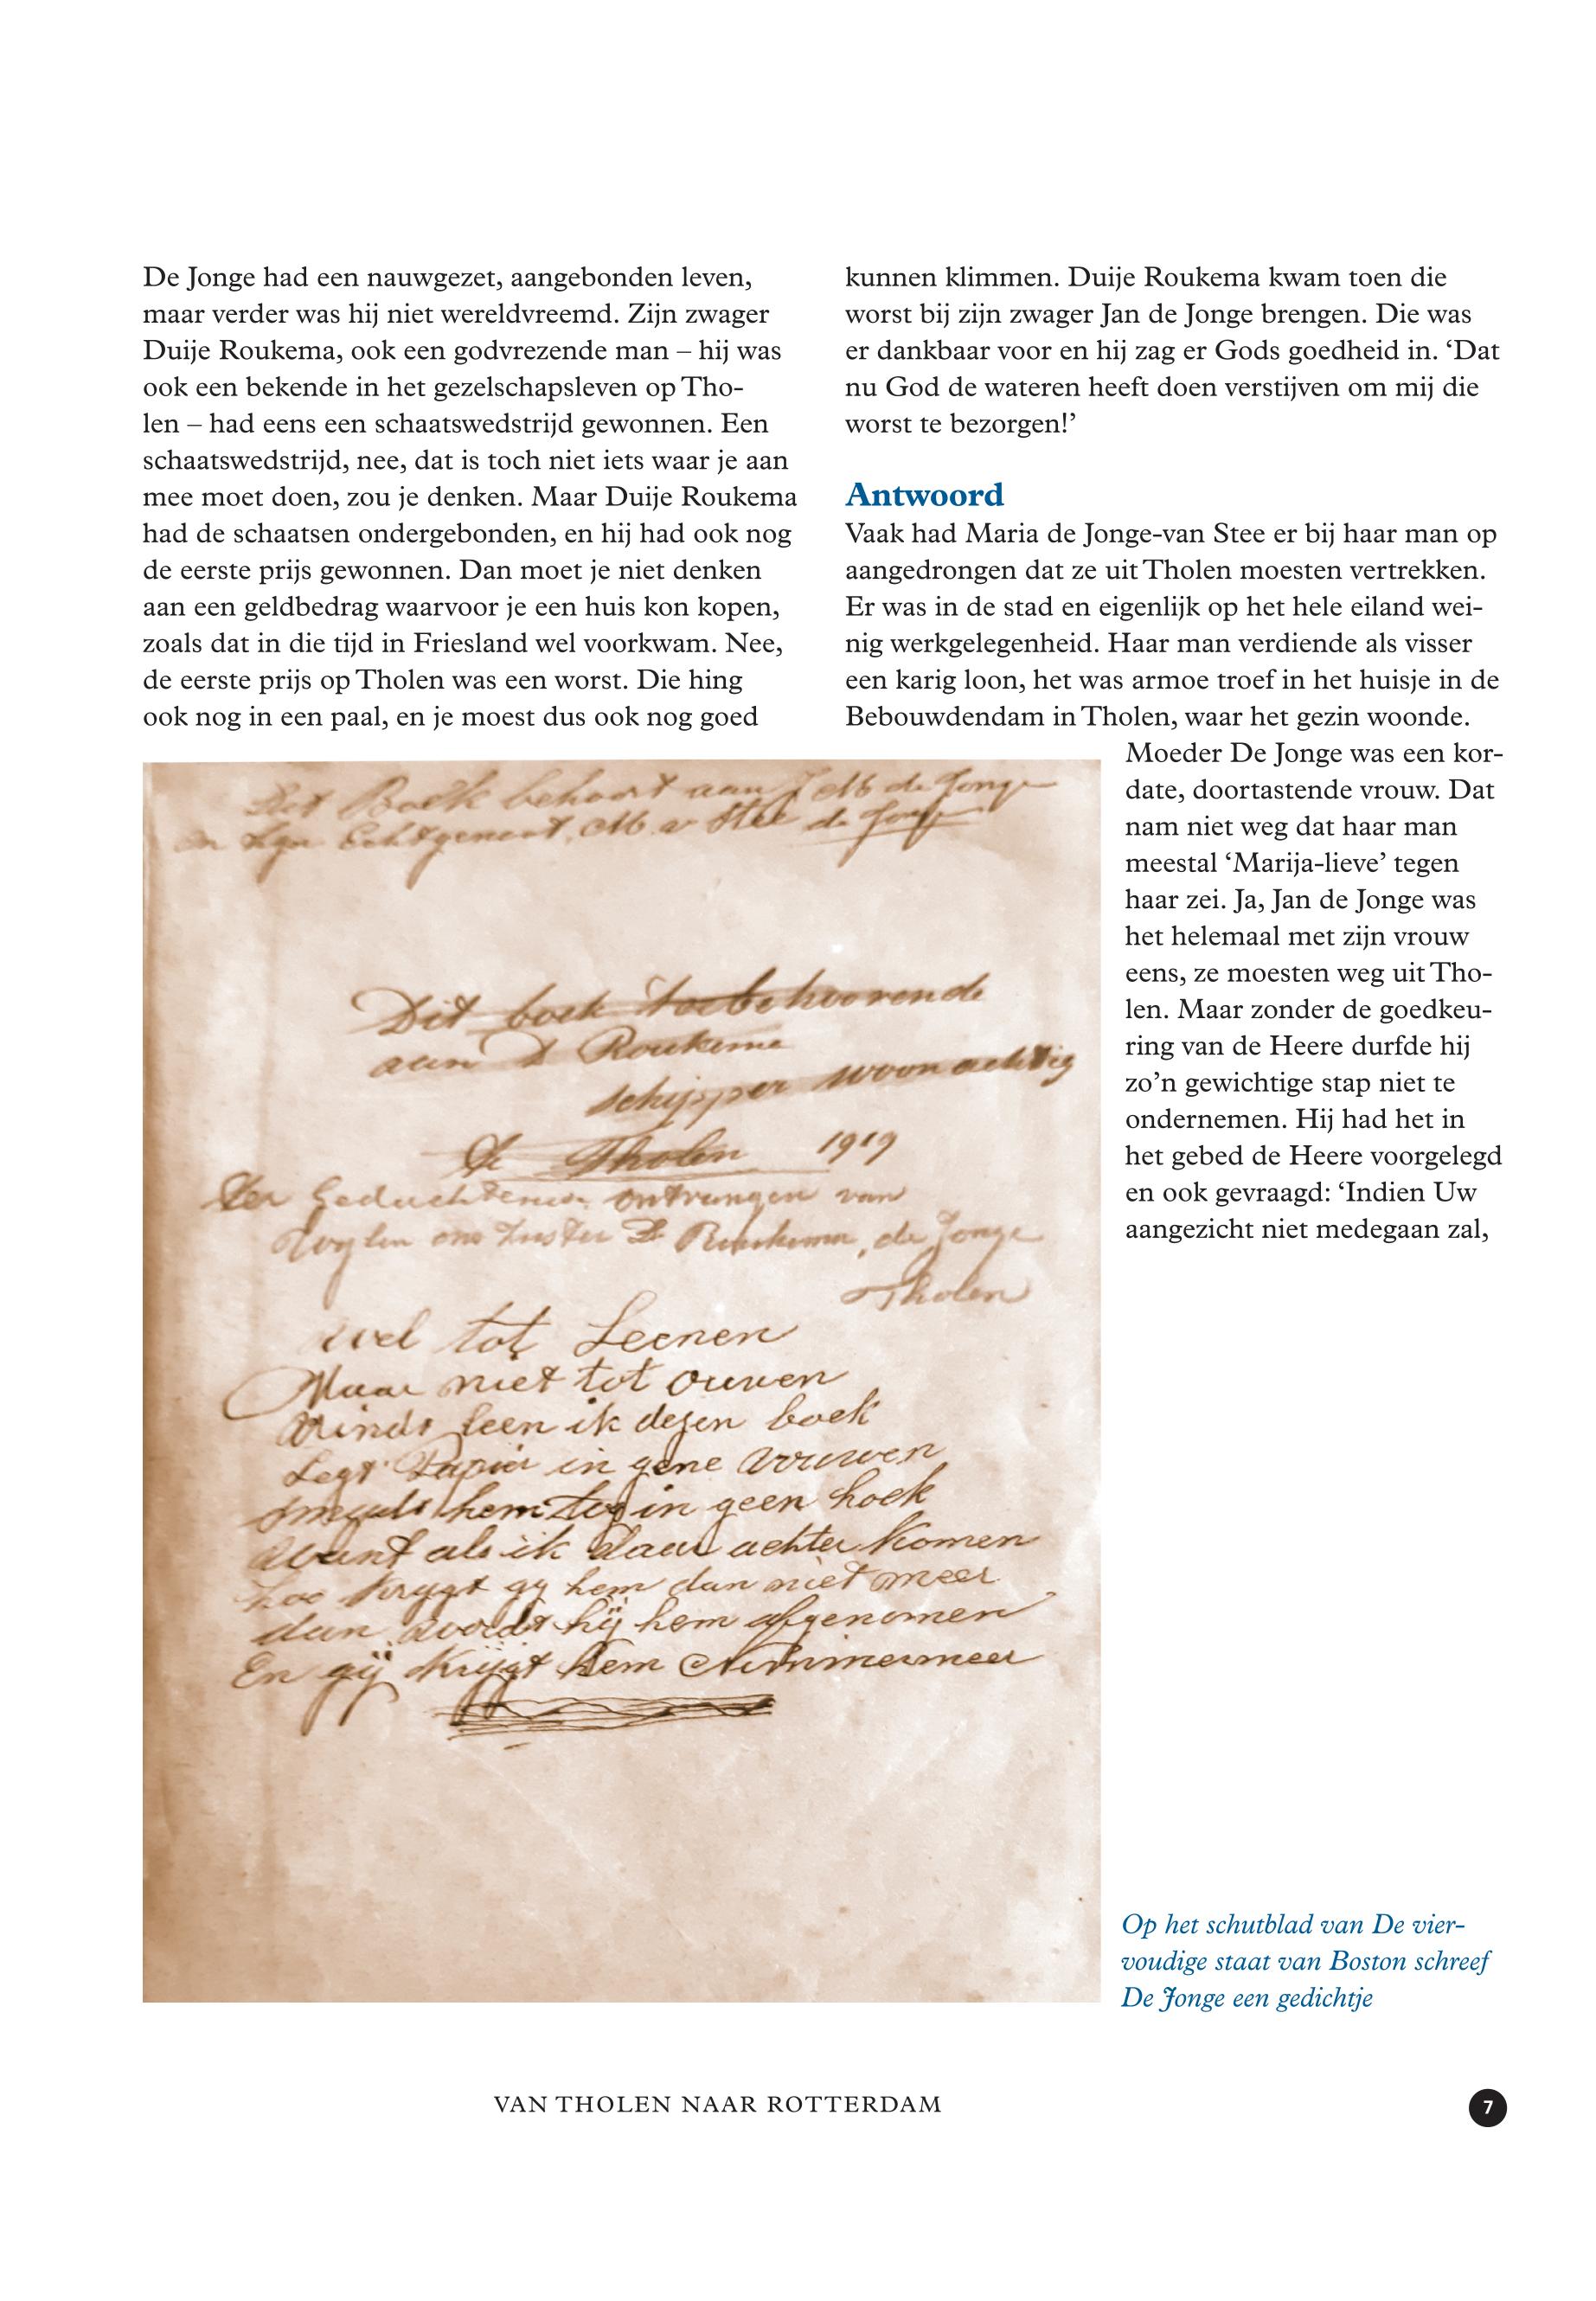 De Jonge had een nauwgezet, aangebonden leven,
maar verder was hij niet wereldvreemd. Zijn zwager
Duije Roukema, ook een godvrezende man – hij was
ook een bekende in het gezelschapsleven op Tho-
len – had eens een schaatswedstrijd gewonnen. Een
schaatswedstrijd, nee, dat is toch niet iets waar je aan
mee moet doen, zou je denken. Maar Duije Roukema
had de schaatsen ondergebonden, en hij had ook nog
de eerste prijs gewonnen. Dan moet je niet denken
aan een geldbedrag waarvoor je een huis kon kopen,
zoals dat in die tijd in Friesland wel voorkwam. Nee,
de eerste prijs op Tholen was een worst. Die hing
ook nog in een paal, en je moest dus ook nog goed
kunnen klimmen. Duije Roukema kwam toen die
worst bij zijn zwager Jan de Jonge brengen. Die was
er dankbaar voor en hij zag er Gods goedheid in. ‘Dat
nu God de wateren heeft doen verstijven om mij die
worst te bezorgen!’
Antwoord
Vaak had Maria de Jonge-van Stee er bij haar man op
aangedrongen dat ze uit Tholen moesten vertrekken.
Er was in de stad en eigenlijk op het hele eiland wei-
nig werkgelegenheid. Haar man verdiende als visser
een karig loon, het was armoe troef in het huisje in de
Bebouwdendam in Tholen, waar het gezin woonde.
Moeder De Jonge was een kor-
date, doortastende vrouw. Dat
nam niet weg dat haar man
meestal ‘Marija-lieve’ tegen
haar zei. Ja, Jan de Jonge was
het helemaal met zijn vrouw
eens, ze moesten weg uit Tho-
len. Maar zonder de goedkeu-
ring van de Heere durfde hij
zo’n gewichtige stap niet te
ondernemen. Hij had het in
het gebed de Heere voorgelegd
en ook gevraagd: ‘Indien Uw
aangezicht niet medegaan zal,
Boek behoort aan J M de Jonge
en Echtgenoot, M v Stee de Jong
Dit boek toebehoorende
aan D Roukema
schipper woonachtig
Te Tholen 1919
Ter ontvangen van
ons zuster D Roukema, de Jonge
Tholen
wel tot Leenen
Maar niet tot ouwen
leen ik dezen boek
Legt Papier in gene vouwen
hem tog in geen hoek
want als ik daar achter komen
Zoo krygt gy hem dan niet meer
dan wordt hij hem afgenomen
En gij krijgt hem Nimmermeer
Op het schutblad van De vier-
voudige staat van Boston schreef
De Jonge een gedichtje
VAN THOLEN NAAR ROTTERDAM
7